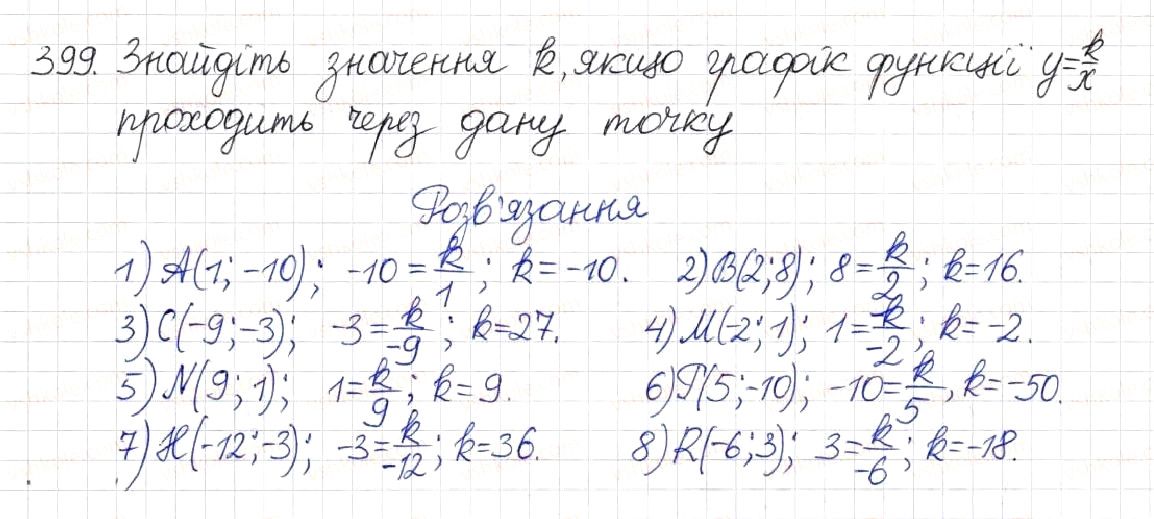 399. Знайдіть значення k, якщо графік функції y=k/x
проходить через дану точку
Розв'язання
1) A(1; -10); -10 = k/1; k = -10. 2) B(2; 8); 8 = k/2; k=16.
3) C(-9; -3); -3 = k/-9; k=27. 4) M(-2; 1); 1 = k/-2; k= -2.
5) N(9; 1); 1 = k/9; k = 9. 6) P(5; -10); -10 = k/5, k= -50.
7) H(-12; -3); -3 = k/-12; k=36. 8) R(-6; 3); 3 = k/-6; k= -18.